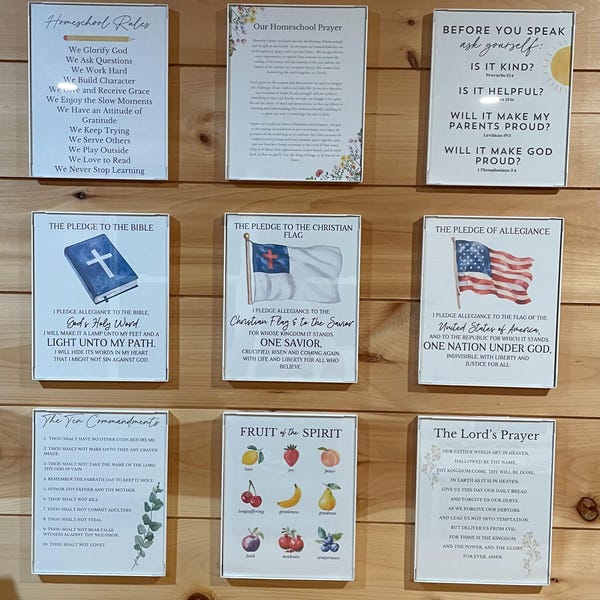 Homeschool Rules
We Glorify God
We Ask Questions
We Work Hard
We Build Character
We Give and Receive Grace
We Enjoy the Slow Moments
We Have an Attitude of
Gratitude
We Keep Trying
We Serve Others
We Play Outside
We Love to Read
We Never Stop Learning
Our Homeschool Prayer
BEFORE YOU SPEAK
ask yourself:
IS IT KIND?
Proverbs 15:4
IS IT HELPFUL?
WILL IT MAKE MY
PARENTS PROUD?
Leviticus 19:3
WILL IT MAKE GOD
PROUD?
1 Thessalonians 2:4
THE PLEDGE TO THE BIBLE
I PLEDGE ALLEGIANCE TO THE BIBLE,
God's Holy Word.
I WILL MAKE IT A LAMP UNTO MY FEET AND A
LIGHT UNTO MY PATH.
I WILL HIDE ITS WORDS IN MY HEART
THAT I MIGHT NOT SIN AGAINST GOD.
THE PLEDGE TO THE CHRISTIAN
FLAG
I PLEDGE ALLEGIANCE TO THE
Christian Flag & to the Savior
FOR WHOSE KINGDOM IT STANDS.
ONE SAVIOR,
CRUCIFIED, RISEN AND COMING AGAIN,
WITH LIFE AND LIBERTY FOR ALL WHO
BELIEVE.
THE PLEDGE OF ALLEGIANCE
I PLEDGE ALLEGIANCE TO THE FLAG OF THE
United States of America,
AND TO THE REPUBLIC FOR WHICH IT STANDS,
ONE NATION UNDER GOD,
INDIVISIBLE, WITH LIBERTY AND
JUSTICE FOR ALL.
The Ten Commandments
1. THOU SHALT HAVE NO OTHER GODS BEFORE ME.
2. THOU SHALT NOT MAKE UNTO THEE ANY GRAVEN
IMAGE.
3. THOU SHALT NOT TAKE THE NAME OF THE LORD
THY GOD IN VAIN.
4. REMEMBER THE SABBATH DAY TO KEEP IT HOLY.
5. HONOR THY FATHER AND THY MOTHER.
6. THOU SHALT NOT KILL.
7. THOU SHALT NOT COMMIT ADULTERY.
8. THOU SHALT NOT STEAL.
9. THOU SHALT NOT BEAR FALSE
WITNESS AGAINST THY NEIGHBOR.
10. THOU SHALT NOT COVET.
FRUIT of the SPIRIT
love joy peace
longsuffering gentleness goodness
faith meekness temperance
The Lord's Prayer
OUR FATHER WHICH ART IN HEAVEN,
HALLOWED BE THY NAME,
THY KINGDOM COME, THY WILL BE DONE,
IN EARTH AS IT IS IN HEAVEN.
GIVE US THIS DAY OUR DAILY BREAD,
AND FORGIVE US OUR DEBTS,
AS WE FORGIVE OUR DEBTORS.
AND LEAD US NOT INTO TEMPTATION,
BUT DELIVER US FROM EVIL.
FOR THINE IS THE KINGDOM,
AND THE POWER, AND THE GLORY
FOR EVER. AMEN.